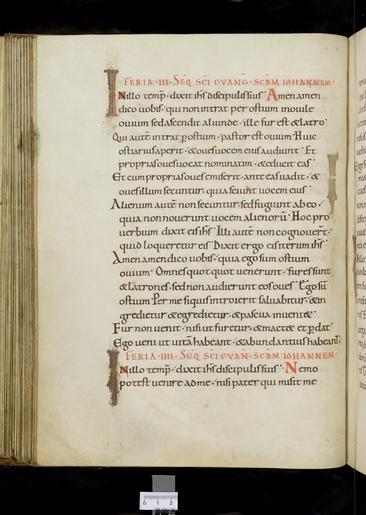 FERIA · III · SEQ̄ SCĪ EVANG̅ · SCDM̅ IOHANNEM ·
INillo temp̄ · dixit ihs̄ discipulis suis · Amen amen
dico vobis · qui non intrat per ostium inovile
ovium sed ascendit aliunde · ille fur est & latro ·
Qui autē intrat p ostium · pastor est ovium · Huic
ostiarius aperit · & oves vocem eius audiunt · Et
proprias oves vocat nominatim · & educit eas ·
Et cum proprias oves emiserit · ante eas vadit · &
oves illum secuntur · quia sciunt vocem eius ·
Alienum autē non secuntur sed fugiunt ab eo ·
quia non noverunt vocem alienorū · Hoc pro
verbium dixit eis ihs̄ · Illi autē non cognover̄ ·
quid loqueretur eis · Dixit ergo eis iterum ihs̄ ·
Amen amen dico vobis · quia ego sum ostium
ovium · Omnes quot quot venerunt · fures sunt
& latrones · sed non audierunt eos oves · Ego sū
ostium · Per me si quis introierit salvabitur · & in
gredietur & egredietur · & pascua inveni&
Fur non venit · nisi ut furetur · & mact& et p̄dat ·
Ego veni ut vitā habeant · & abundantius habeant ·
FERIA · IIII · SEQ̄ SCĪ EVAN̅ · SCDM̅ IOHANNEM ·
INillo temp̄ · dixit ihs̄ discipulis suis · Nemo
potest venire ad me · nisi pater qui misit me
0 1 2